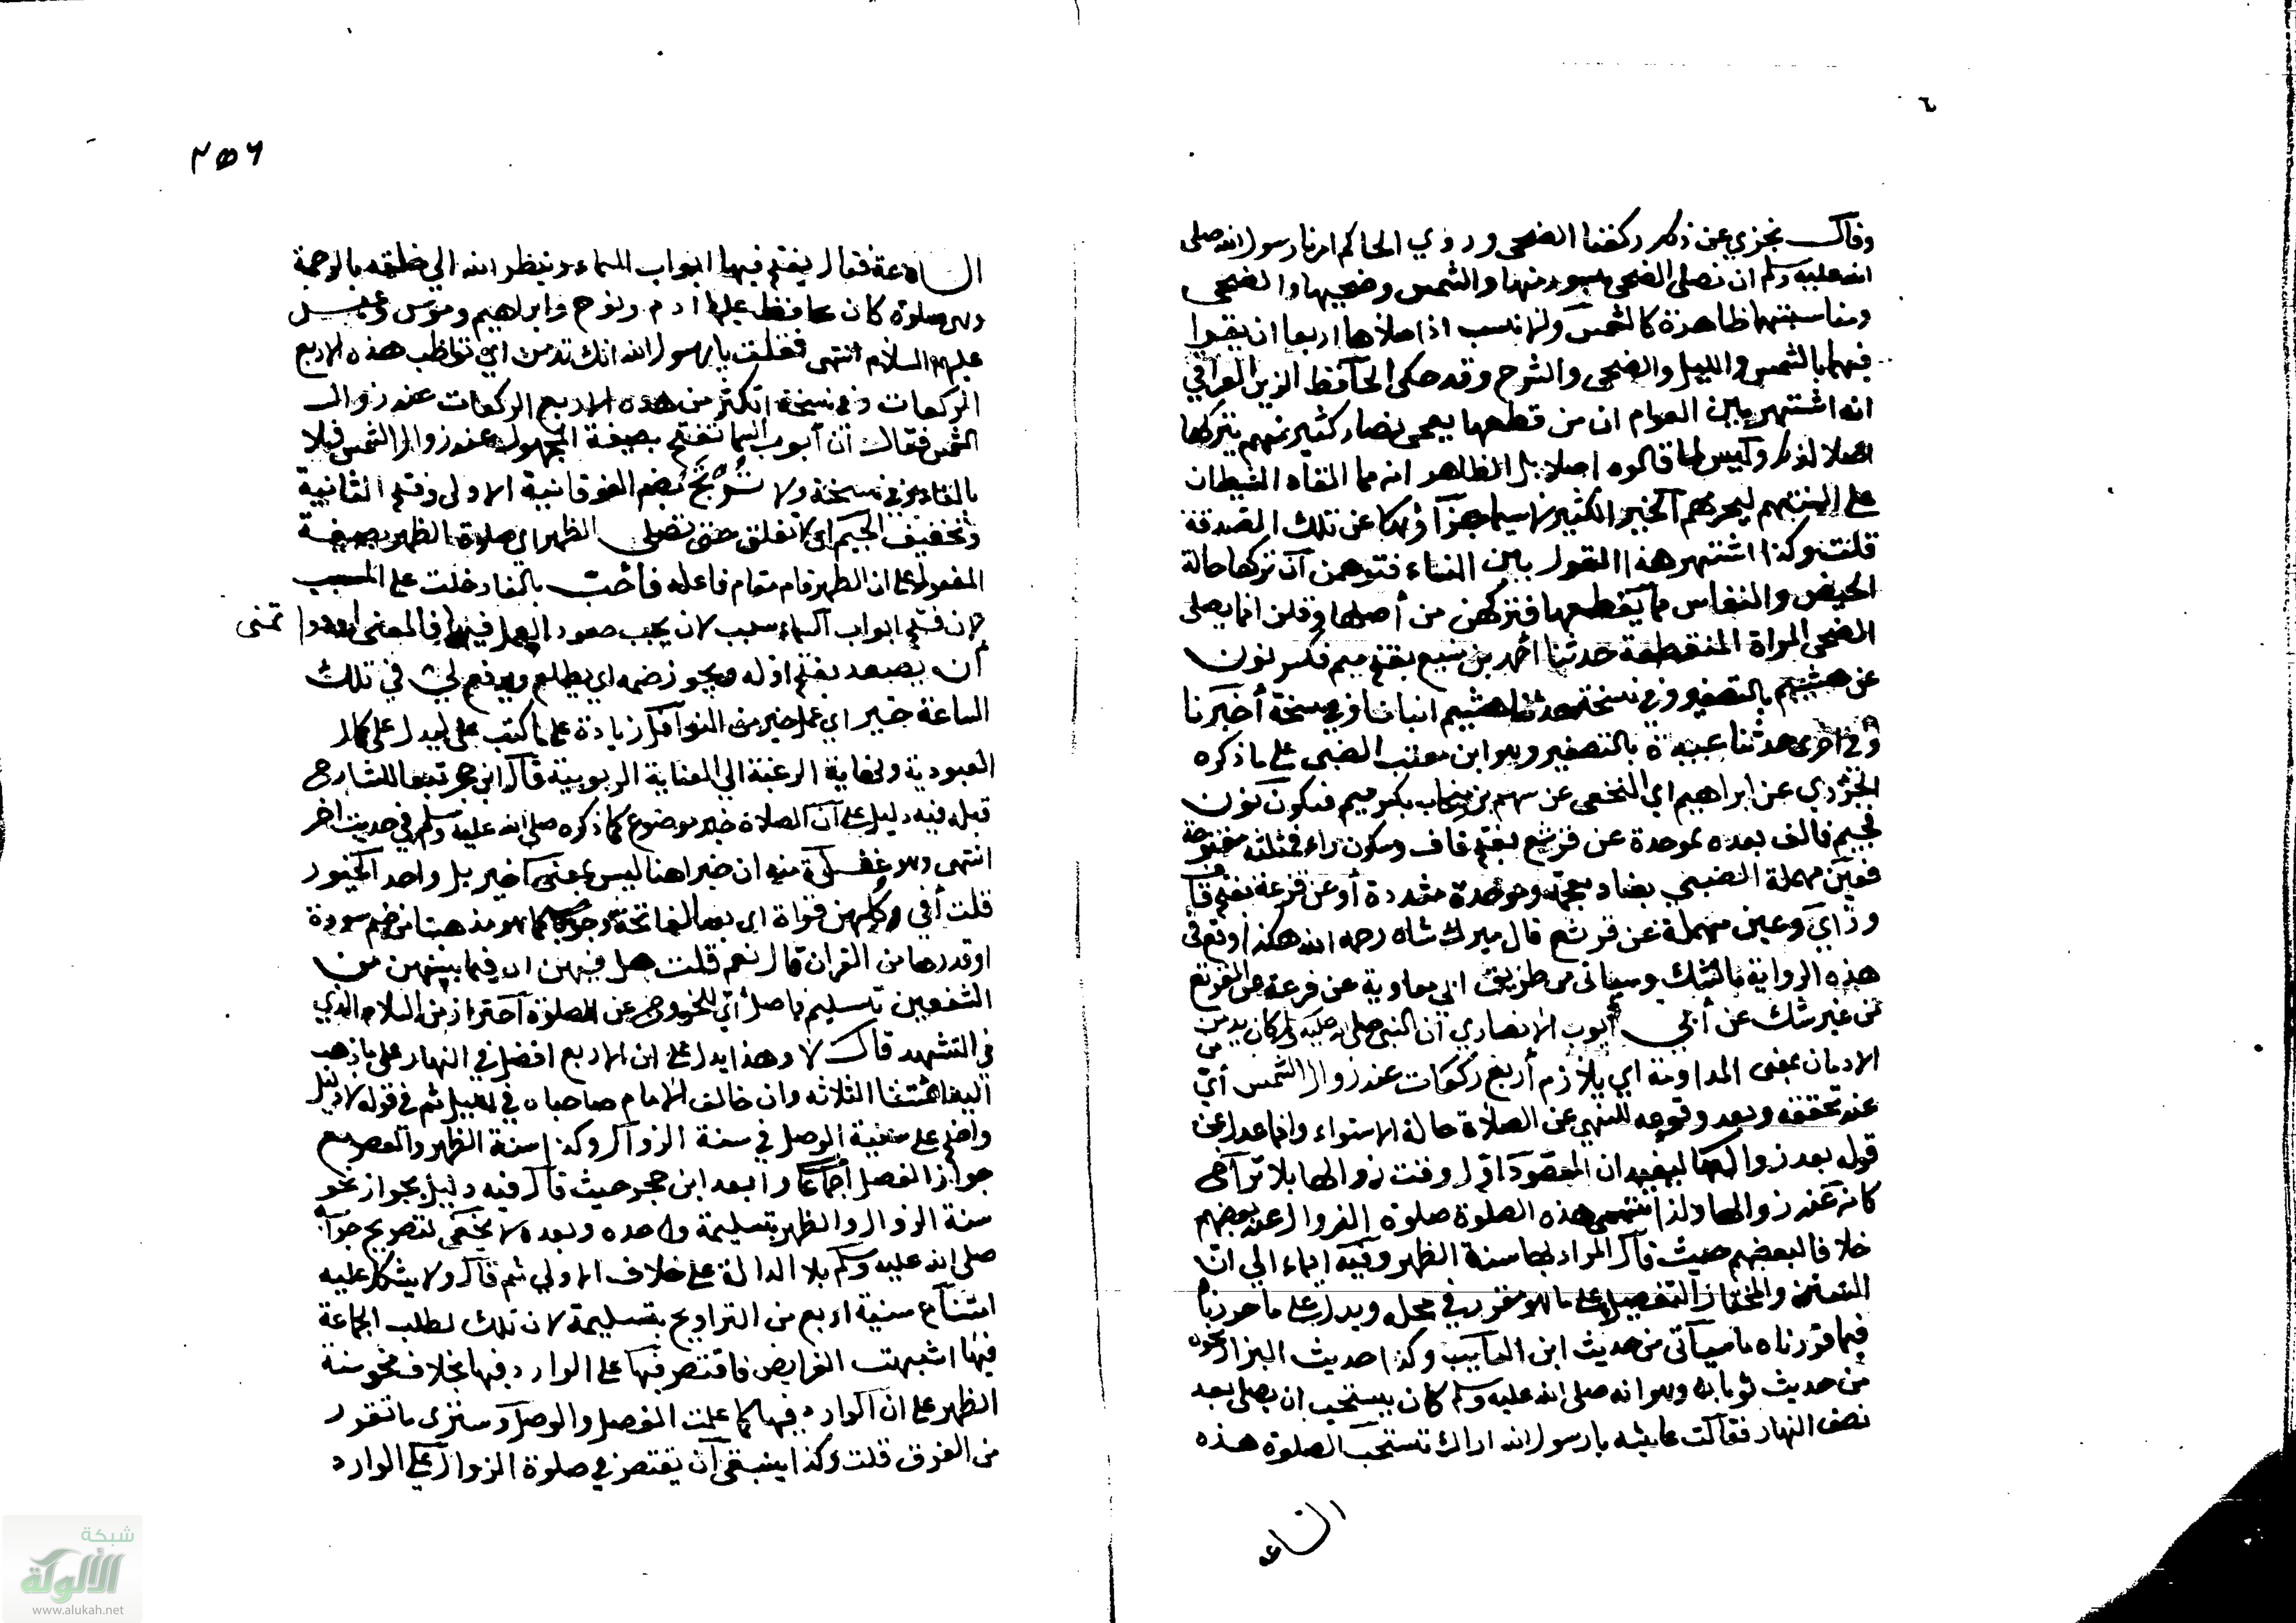 وقال يجزي عن ذلك ركعتا الضحى وروي الحاكم امرنا رسول الله صلى
الله عليه وسلم ان نصلي الضحى بسور منها والشمس وضحيها والضحى
ومناسبتهما ظاهرة كالشمس والانسب اذا صلاها اربعا ان يقرا
فيها بالشمس والليل والضحى والشرح وقد حكى الحافظ الزين العراقي
انه اشتهر بين العوام ان من قطعها يعمى فصار كثير منهم يتركها
اصلا لذلك وليس لما قالوه اصلا بل الظاهر انه مما القاه الشيطان
على السنتهم ليحرمهم الخير الكثير لا سيما عن تلك الصدقة
قلت وكذا اشتهر هذا القول بين النساء فتوهمن ان تركها حالة
الحيض والنفاس مما يقطعها فتركهن من أصلها وقلن انما يصلي
الضحى المراة المنقطعة حدثنا أحمد بن منيع بفتح ميم فكسر نون
عن هشيم بالتصغير وفي نسخة حدثنا هشيم انبانا وفي نسخة أخبرنا
وفي اخرى حدثنا عبيدة بالتصغير وهو ابن معتب الضبى على ما ذكره
الجزري عن ابراهيم اي النخعي عن سهم بن منجاب بكسر ميم فسكون نون
فجيم فالف بعده موحدة عن قرثع بفتح قاف وسكون راء فمثلثة مفتوحة
فعين مهملة الضبي بضاد معجمة وموحدة مشددة أو عن قزعة بفتح قاف
وزاي وعين مهملة عن قرثع قال ميرك شاه رحمه الله هكذا وقع في
هذه الرواية بالشك وسياتي من طريق ابي معاوية عن قزعة عن القرثع
من غير شك عن أبي أيوب الانصاري ان النبي صلى الله عليه وسلم كان يدمن من
الادمان بمعنى المداومة اي يلازم أربع ركعات عند زوال الشمس أي
عند تحققه وبعد وقوعه للنهي عن الصلاة حالة الاستواء وانما عدل عن
قوله بعد زوالها ليفيد ان المقصود اول وقت زوالها بلا تراخي
كانه عند زوالها ولذا تسمى هذه الصلوة صلوة الزوال عند بعضهم
خلافا لبعضهم حيث قال المراد بها سنة الظهر وفيه ايماء الى ان
والمختار التفصيل على ما هو مقرر في محله ويدل على ما حررنا
فيما قررناه ما سيأتي من حديث ابن السايب وكذا حديث البزار نحوه
من حديث ثوبان وهو انه صلى الله عليه وسلم كان يستحب ان يصلي بعد
نصف النهار فقالت عايشه يا رسول الله اراك تستحب الصلوة هذه
الساعة
٢٥٦
الساعة فقال يفتح فيها ابواب السماء وينظر الله الى خلقه بالرحمة
وهي صلوة كان يحافظ عليها ادم ونوح وابراهيم وموسى وعيسى
عليهم السلام انتهى فقلت يا رسول الله انك تدمن اي تواظب هذه الاربع
الركعات وفي نسخة تكثر من هذه الاربع الركعات عند زوال
الشمس فقال ان أبواب السما تفتح بصيغة المجهول عند زوال الشمس فلا
بالفاء وفي نسخة ولا تُرْتَجُ بضم الفوقانية الاولى وفتح الثانية
وتخفيف الجيم اي لا تغلق حتى تصلى الظهر اي صلوة الظهر بصيغة
المفعول على ان الظهر قام مقام فاعله فأحب بالفاء دخلت على المسبب
لان فتح ابواب السماء سبب لان يحب صعود العمل فيها فالمعنى تمنى
أن يصعد بفتح اوله ويجوز ضمه اي يطلع ويرفع لي في تلك
الساعة خير اي عمل خير من النوافل زيادة على ما كتب على ليدل على كمال
العبودية ولغاية الرغبة الى العناية الربوبية قال ابن حجر تبعا للشارح
قبله فيه دليل على ان الصلاة خير موضوع كما ذكره صلى الله عليه وسلم في حديث اخر
انتهى وهو غفلة منه ان خيرا هنا ليس بمعنى اخير بل واحد الخيور
قلت أفي كلهن قراة اي بعد الفاتحة كما هو مذهبنا من ضم سورة
او قدرها من القران قال نعم قلت هل فيهن اي فيما بينهن من
الشفعين تسليم فاصل أي للخروج عن الصلوة احترازا من السلام الذي
في التشهد قال لا وهذا يدل على ان الاربع افضل في النهار على ما ذهب
اليه ائمتنا الثلاثه وان خالف الامام صاحباه في الليل ثم في قوله لا دليل
واضح على سنية الوصل في سنة الزوال وكذا سنة الظهر والعصر مع
جواز الفصل اجماعا وابعد ابن حجر حيث قال فيه دليل بجواز نحو
سنة الزوال والظهر بتسليمة واحده وبعده لا يخفى لتصريح جوابه
صلى الله عليه وسلم بلا الدالة على خلاف الاولى ثم قال ولا يشكل عليه
امتناع سنية اربع من التراويح بتسليمة لان تلك لطلب الجماعة
فيها اشبهت الفرايض فاقتصر فيها على الوارد فيها بخلاف نحو سنة
الظهر على ان الوارد فيها كما علمت الفصل والوصل وسترى ما تقرر
من الفرق قلت وكذا ينبغي ان يقتصر في صلوة الزوال على الوارد
شبكة
الألوكة
www.alukah.net